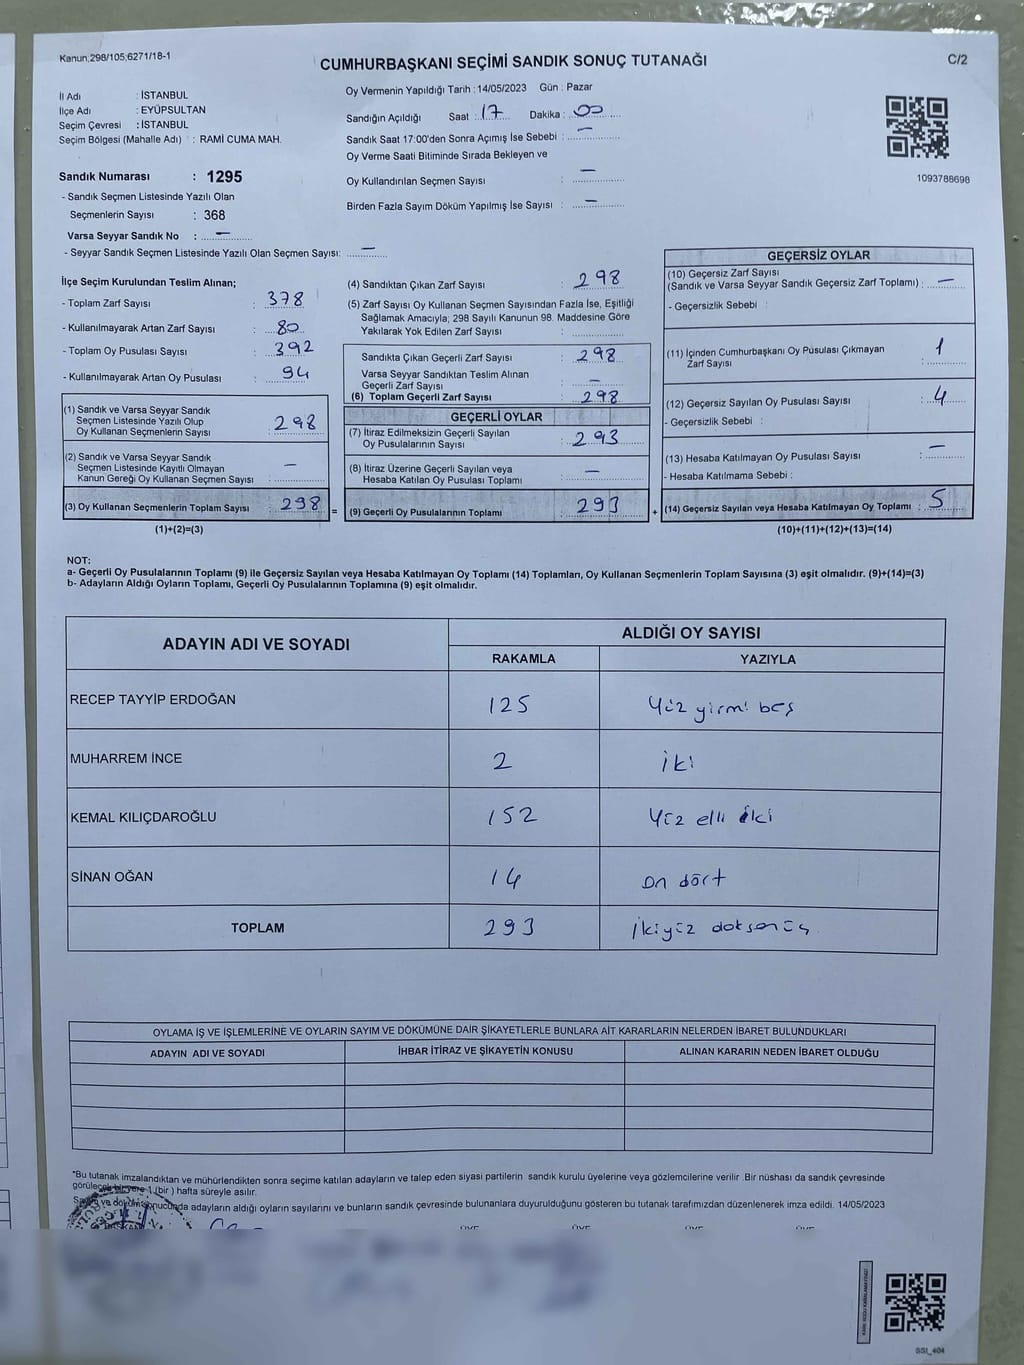 Kanun;298/105;6271/18-1
CUMHURBAŞKANI SEÇİMİ SANDIK SONUÇ TUTANAĞI
C/2
İl Adı : İSTANBUL
İlçe Adı : EYÜPSULTAN
Seçim Çevresi : İSTANBUL
Seçim Bölgesi (Mahalle Adı) : RAMİ CUMA MAH.
Sandık Numarası : 1295
- Sandık Seçmen Listesinde Yazılı Olan
Seçmenlerin Sayısı : 368
Varsa Seyyar Sandık No : —
- Seyyar Sandık Seçmen Listesinde Yazılı Olan Seçmen Sayısı: —
Oy Vermenin Yapıldığı Tarih : 14/05/2023 Gün : Pazar
Sandığın Açıldığı Saat : 17 Dakika : 00
Sandık Saat 17:00'den Sonra Açımış İse Sebebi : —
Oy Verme Saati Bitiminde Sırada Bekleyen ve
Oy Kullandırılan Seçmen Sayısı : —
Birden Fazla Sayım Döküm Yapılmış İse Sayısı : —
1093788698
İlçe Seçim Kurulundan Teslim Alınan;
- Toplam Zarf Sayısı : 378
- Kullanılmayarak Artan Zarf Sayısı : 80
- Toplam Oy Pusulası Sayısı : 392
- Kullanılmayarak Artan Oy Pusulası : 94
(1) Sandık ve Varsa Seyyar Sandık
Seçmen Listesinde Yazılı Olup
Oy Kullanan Seçmenlerin Sayısı : 298
(2) Sandık ve Varsa Seyyar Sandık
Seçmen Listesinde Kayıtlı Olmayan
Kanun Gereği Oy Kullanan Seçmen Sayısı : —
(3) Oy Kullanan Seçmenlerin Toplam Sayısı : 298 =
(1)+(2)=(3)
(4) Sandıktan Çıkan Zarf Sayısı : 298
(5) Zarf Sayısı Oy Kullanan Seçmen Sayısından Fazla İse, Eşitliği
Sağlamak Amacıyla; 298 Sayılı Kanunun 98. Maddesine Göre
Yakılarak Yok Edilen Zarf Sayısı :
Sandıkta Çıkan Geçerli Zarf Sayısı : 298
Varsa Seyyar Sandıktan Teslim Alınan
Geçerli Zarf Sayısı : —
(6) Toplam Geçerli Zarf Sayısı : 298
GEÇERLİ OYLAR
(7) İtiraz Edilmeksizin Geçerli Sayılan
Oy Pusulalarının Sayısı : 293
(8) İtiraz Üzerine Geçerli Sayılan veya
Hesaba Katılan Oy Pusulası Toplamı : —
(9) Geçerli Oy Pusulalarının Toplamı : 293 +
GEÇERSİZ OYLAR
(10) Geçersiz Zarf Sayısı
(Sandık ve Varsa Seyyar Sandık Geçersiz Zarf Toplamı) : —
- Geçersizlik Sebebi :
(11) İçinden Cumhurbaşkanı Oy Pusulası Çıkmayan
Zarf Sayısı : 1
(12) Geçersiz Sayılan Oy Pusulası Sayısı : 4
- Geçersizlik Sebebi :
(13) Hesaba Katılmayan Oy Pusulası Sayısı : —
- Hesaba Katılmama Sebebi :
(14) Geçersiz Sayılan veya Hesaba Katılmayan Oy Toplamı : 5
(10)+(11)+(12)+(13)=(14)
NOT:
a- Geçerli Oy Pusulalarının Toplamı (9) ile Geçersiz Sayılan veya Hesaba Katılmayan Oy Toplamı (14) Toplamları, Oy Kullanan Seçmenlerin Toplam Sayısına (3) eşit olmalıdır. (9)+(14)=(3)
b- Adayların Aldığı Oyların Toplamı, Geçerli Oy Pusulalarının Toplamına (9) eşit olmalıdır.
ADAYIN ADI VE SOYADI
ALDIĞI OY SAYISI
RAKAMLA YAZIYLA
RECEP TAYYİP ERDOĞAN 125 Yüz yirmi beş
MUHARREM İNCE 2 iki
KEMAL KILIÇDAROĞLU 152 Yüz elli iki
SİNAN OĞAN 14 On dört
TOPLAM 293 İkiyüz doksanüç
OYLAMA İŞ VE İŞLEMLERİNE VE OYLARIN SAYIM VE DÖKÜMÜNE DAİR ŞİKAYETLERLE BUNLARA AİT KARARLARIN NELERDEN İBARET BULUNDUKLARI
ADAYIN ADI VE SOYADI İHBAR İTİRAZ VE ŞİKAYETİN KONUSU ALINAN KARARIN NEDEN İBARET OLDUĞU
"Bu tutanak imzalandıktan ve mühürlendikten sonra seçime katılan adayların ve talep eden siyasi partilerin sandık kurulu üyelerine veya gözlemcilerine verilir. Bir nüshası da sandık çevresinde
görülecek bir yere 1 (bir) hafta süreyle asılır.
Sayım ve döküm sonucunda adayların aldığı oyların sayılarını ve bunların sandık çevresinde bulunanlara duyurulduğunu gösteren bu tutanak tarafımızdan düzenlenerek imza edildi. 14/05/2023